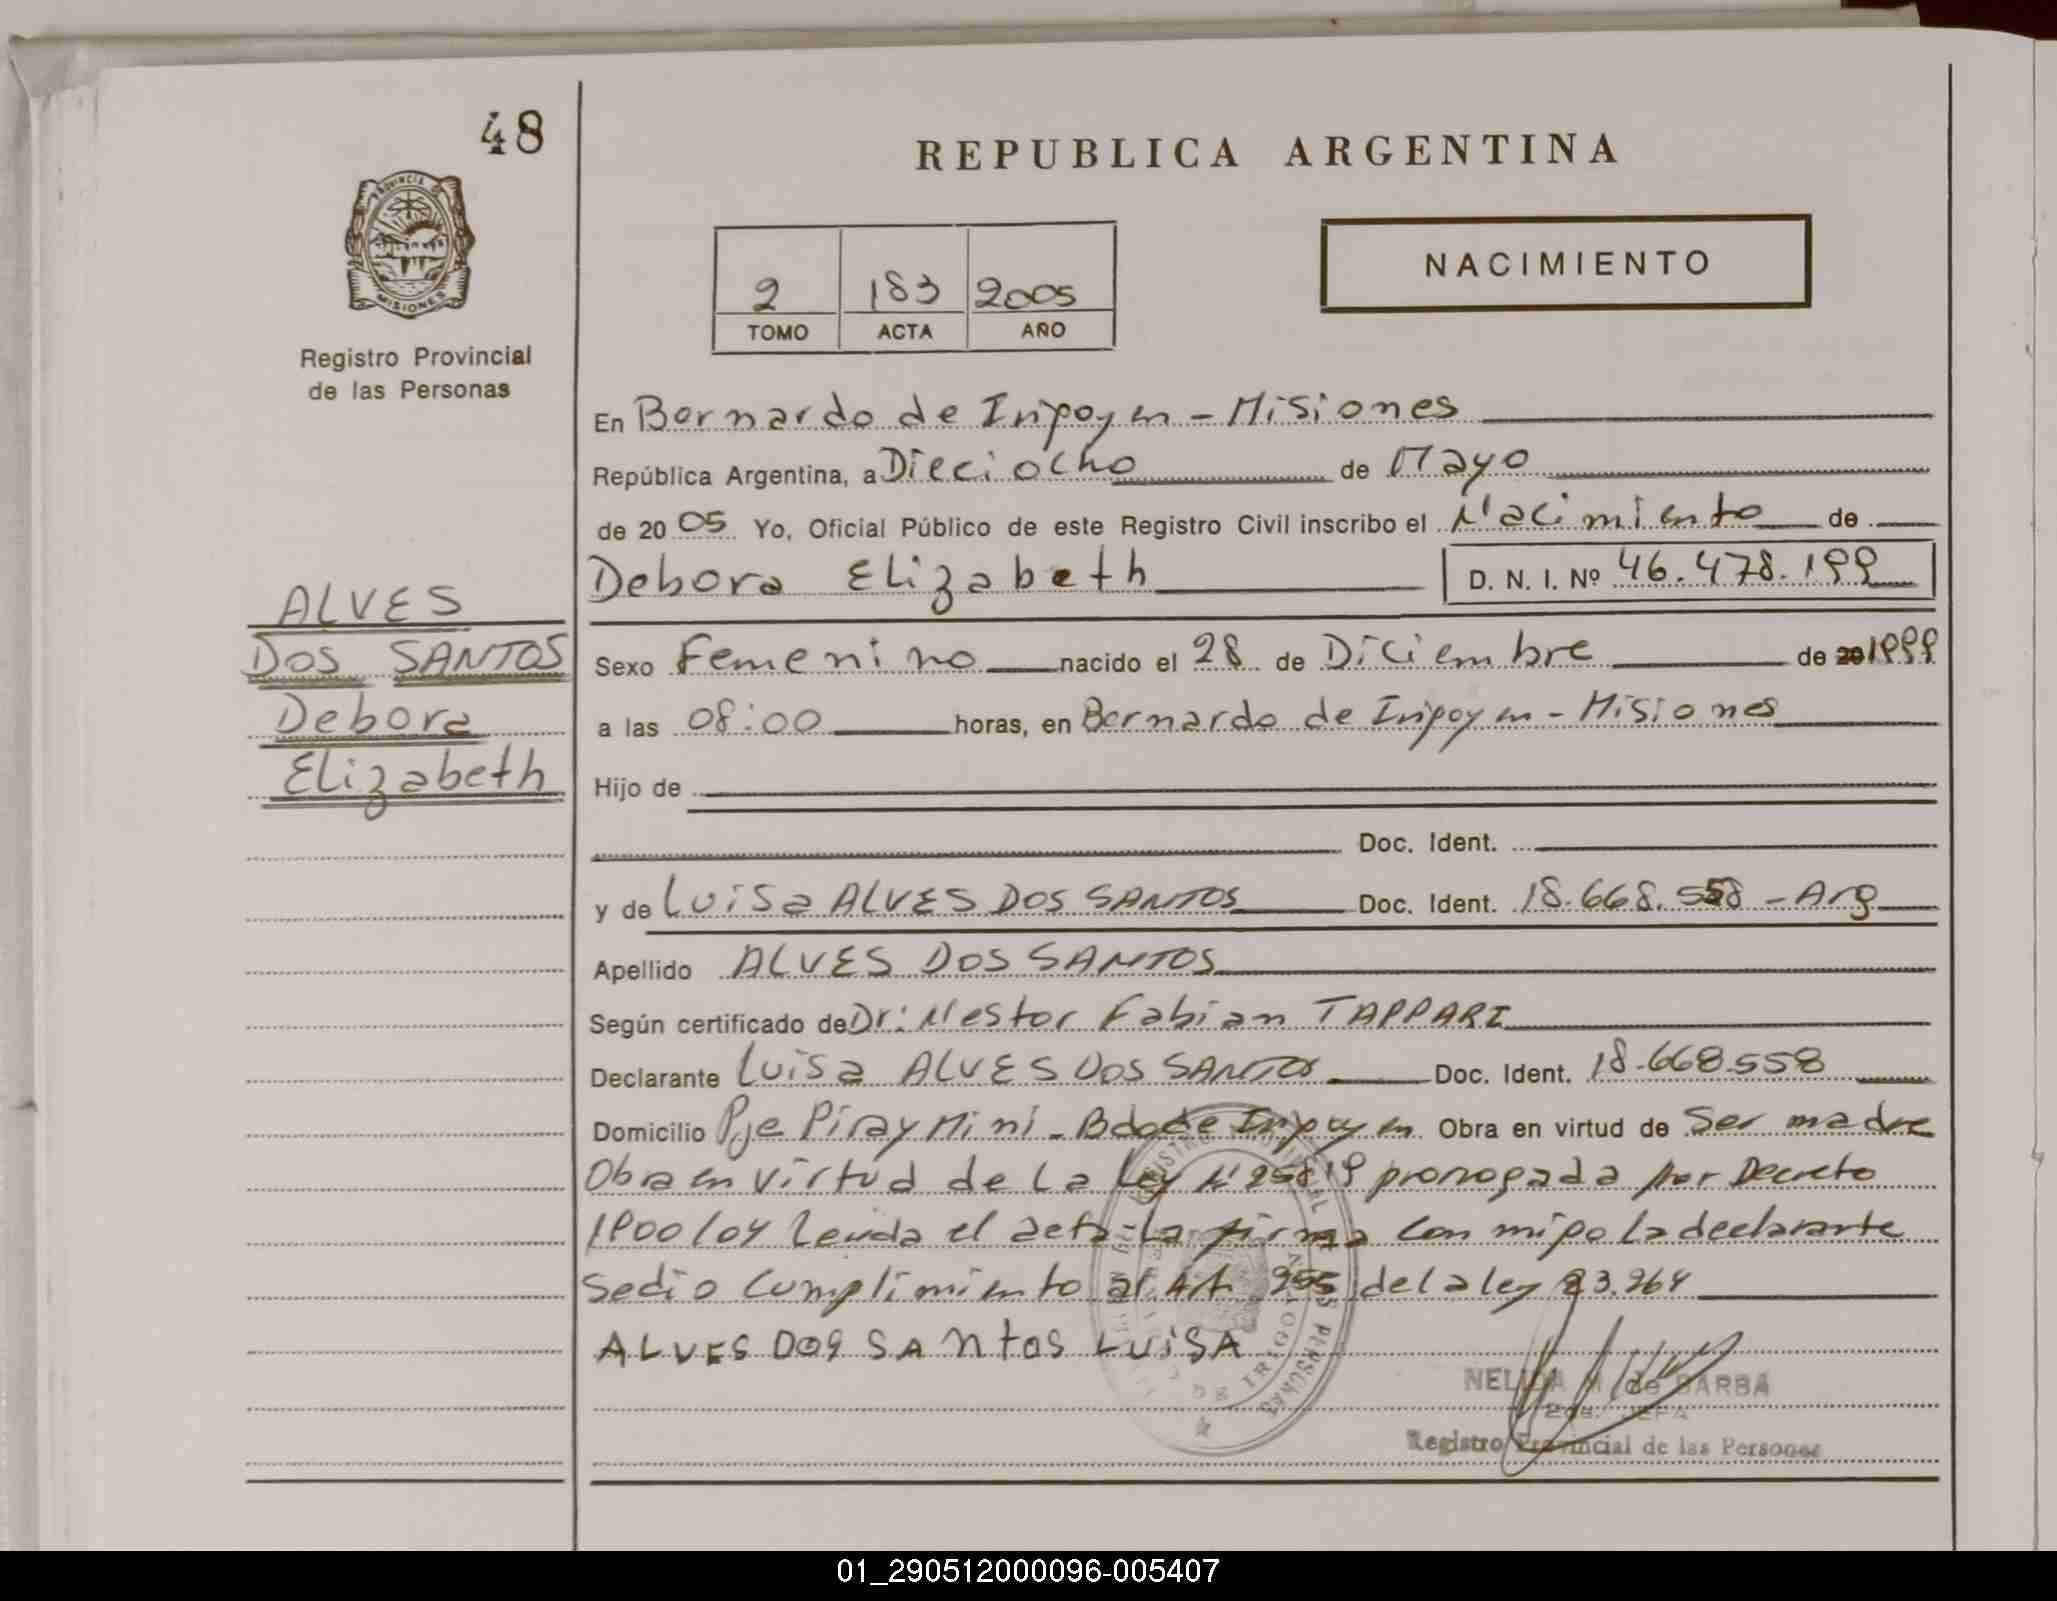 48
REPUBLICA ARGENTINA
PROVINCIA DE
MISIONES
Registro Provincial
de las Personas
NACIMIENTO
2 183 2005
TOMO ACTA AÑO
En Bernardo de Iripoyen - Misiones
República Argentina, a Dieciocho de Mayo
de 20 05 Yo, Oficial Público de este Registro Civil inscribo el Nacimiento de
Debora Elizabeth D. N. I. Nº 46.478.199
ALVES
DOS SANTOS
Debora
Elizabeth
Sexo Femenino nacido el 28 de Diciembre de 20 1999
a las 08:00 horas, en Bernardo de Iripoyen - Misiones
Hijo de
Doc. Ident.
y de Luisa ALVES DOS SANTOS Doc. Ident. 18.668.558 - Arg
Apellido ALVES DOS SANTOS
Según certificado de Dr: Nestor Fabian TAPPARI
Declarante Luisa ALVES DOS SANTOS Doc. Ident. 18.668.558
Domicilio Pje Piray Mini - Bdo de Iripoyen Obra en virtud de Ser madre
Obra en virtud de La Ley Nº 25819 prorrogada por Decreto
1900/04 Leida el acta La firma con migo La declarante
Se dio cumplimiento al Art. 255 de la ley 23.264
ALVES DOS SANtOS LUiSA
NELIDA M de BARBA
JEFA
Registro Provincial de las Personas
01_290512000096-005407